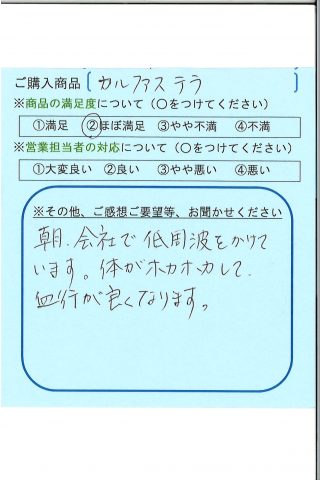 ご購入商品〔カルファス テラ〕
※商品の満足度について（○をつけてください）
①満足 ②ほぼ満足 ③やや不満 ④不満
※営業担当者の対応について（○をつけてください）
①大変良い ②良い ③やや悪い ④悪い
※その他、ご感想ご要望等、お聞かせください
朝.会社で低周波をかけて
います。体がホカホカして.
血行が良くなります。